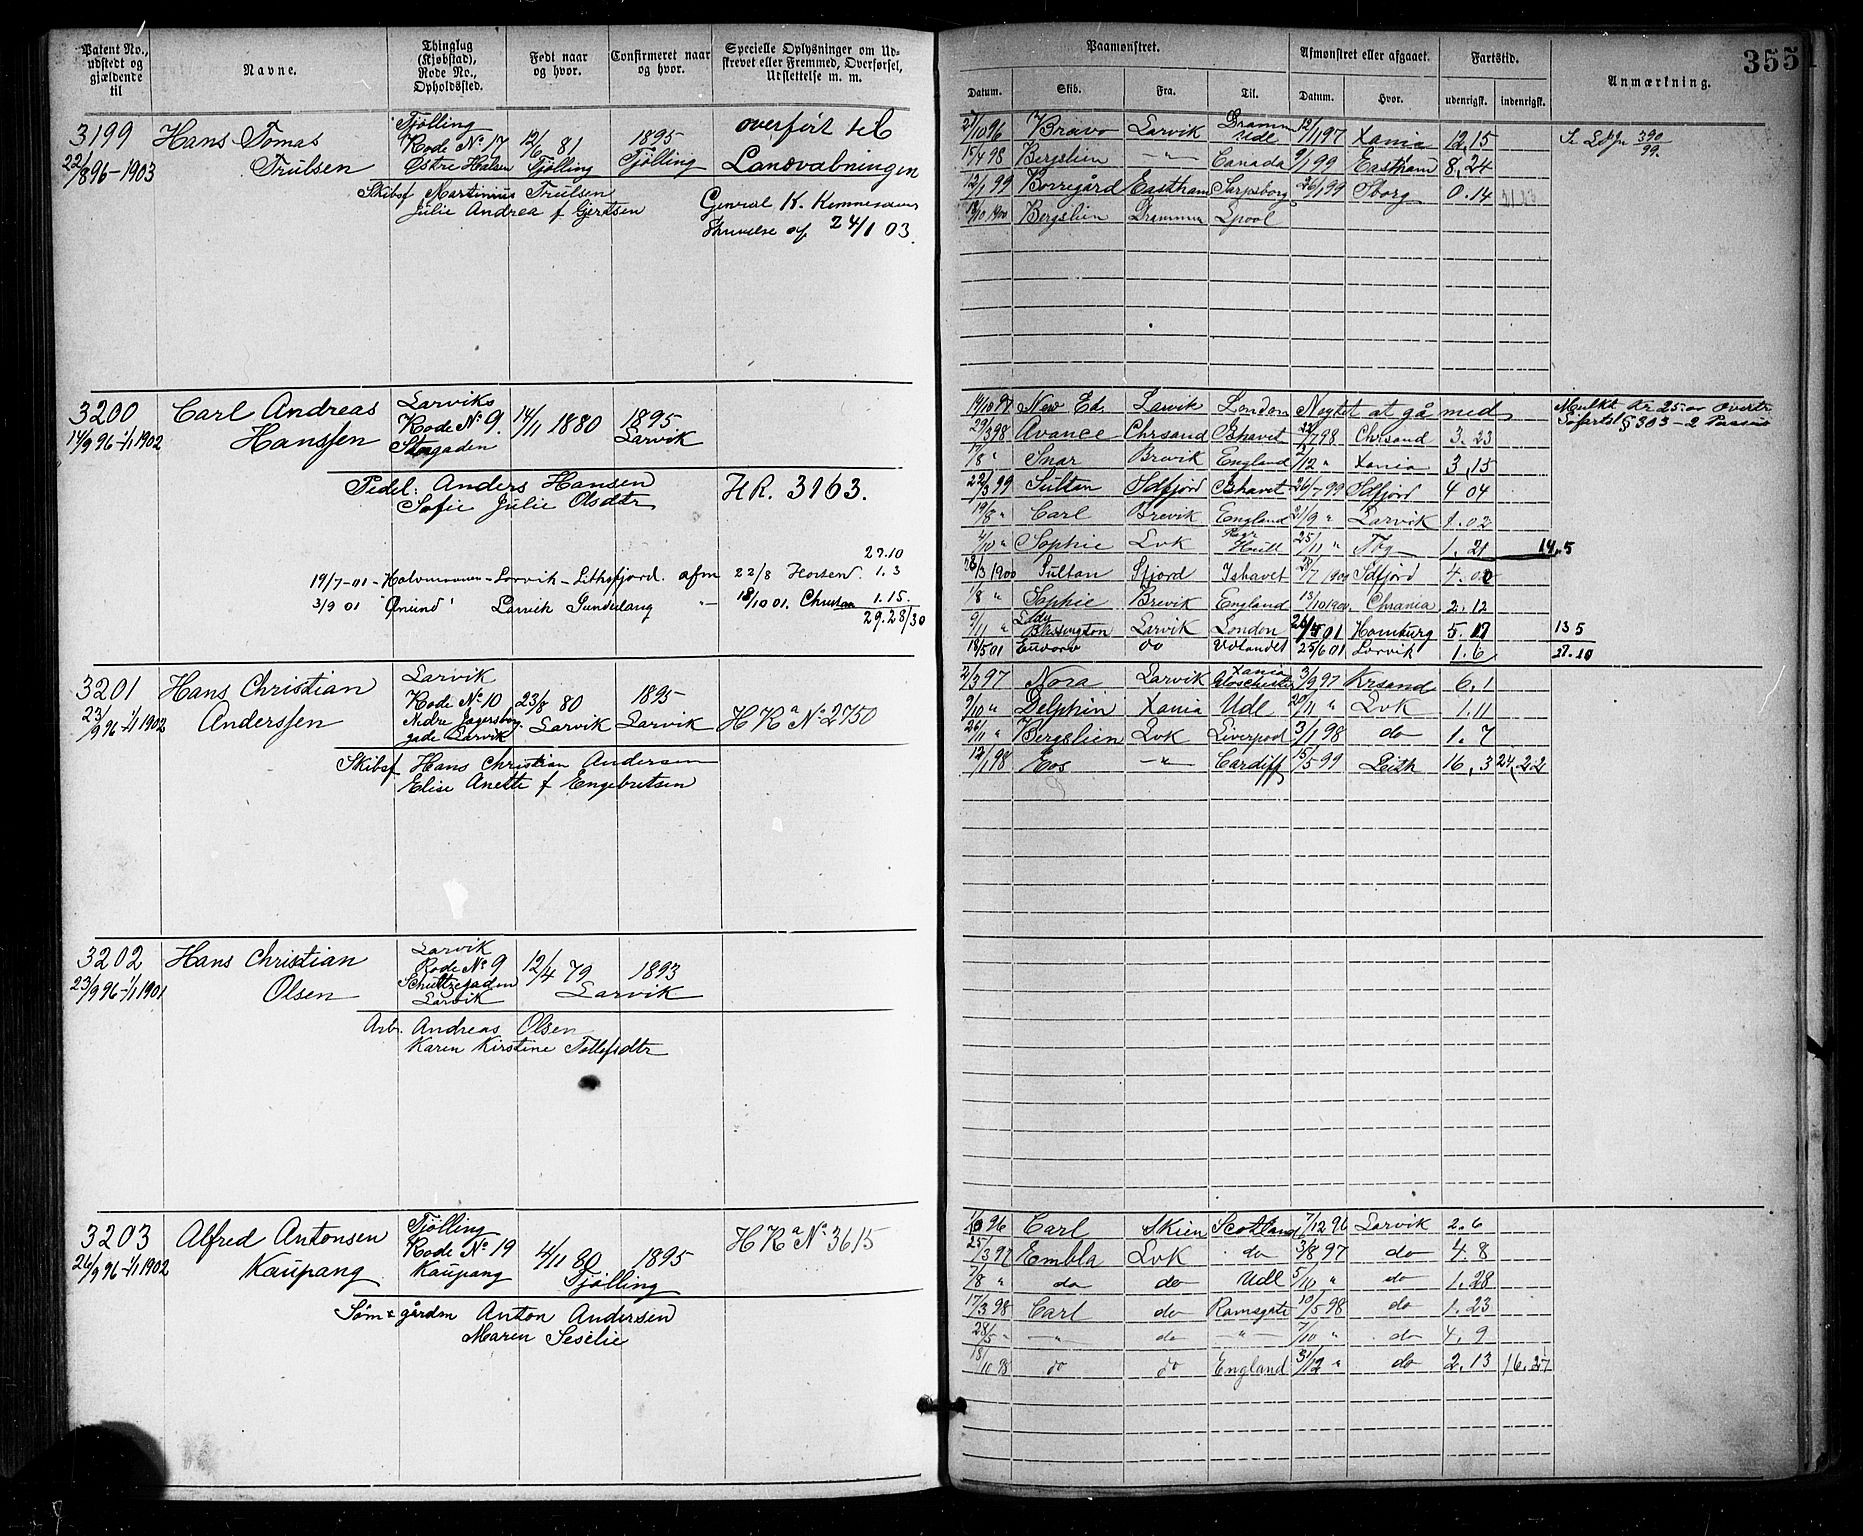 Patent No., udstedt og gjældende til
Navne.
Thinglag (Kjøbstad), Rode No., Opholdssted.
Født naar og hvor.
Confirmeret naar og hvor.
Specielle Oplysninger om Udskrevet eller Fremmed, Overførsel, Utslettelse m. m.
3199 Hans Tomas Tjölling 12/6 81 1895 overført til
22/8 96-1903 Trulsen Rode No 17 Østre Halsen Tjölling Tjölling Landvæbningen
Skibsf Martinius Trulsen
Julie Andrea f Gjertsen
General K.
Skrivelse af 24/1 03.
3200 Carl Andreas Larviks 14/11 1880 1895 Larvik
14/9 96-1/1 1902 Hanssen Rode No 9. Storgaden
Pedel: Anders Hansen
Sofie Julie Olsdtr
HR. 3163.
27.10
19/7-01 - Larvik - afm 22/8 Horten. 1.3
3/9 01 "Ømund" Larvik Sundsvang " 18/10 01. 1.15.
29.28/30
3201 Hans Christian Larvik 23/8 80 1895
23/9 96-1/1 1902 Anderssen Rode No 10 Nedre Jegersborg gade Larvik Larvik Larvik H Ra No 2750
Skibsf Hans Christian Andersen
Elise Anette f Engebretsen
3202 Hans Christian Larvik 12/4 79 1893
23/9 96-1/1 1901 Olsen Rode No 9 Schultzegaden Larvik Larvik
Arb. Andreas Olsen
Karen Kirstine Tollefsdtr
3203 Alfred Antonsen Tjölling 4/11 80 1895 H Ra No 3615
26/9 96-1/1 1902 Kaupang Rode No 19 Kaupang Tjölling
Söm & gårdm Anton Andersen
Maren Seselie
355
Paamønstret.
Afmønstret eller afgaaet.
Fartstid.
Anmærkning.
Datum. Skib. Fra. Til. Datum. Hvor. udenrigst. indenrigst.
21/10 96 Bravo Larvik Dramm Udl 12/11 97 Xania 12.15 390/99.
15/4 98 Bergslien -"- Canada 9/1 99 Eastham 8.24
12/1 99 Borregård Eastham Sarpsborg 26/1 99 Sborg 0.14
/10 1900 Bergslien Drammen Lpool
19/10 97 New Ed. Larvik London Negtet at gå med Mulkt Kr 25.
29/3 98 Avance Chrsand Ishavet /7 98 Chrsand 3.23
17/8 " Snar Brevik England 2/12 " Xania 3.15
22/3 99 Sultan Sdfjord Ishavet 26/7 99 Sdfjord 4 04
19/8 " Carl Brevik England 21/9 " Larvik 1.02
4/10 " Sophie Lvk Hull 25/11 " Tbg 1.21 14.5
/3 1900 Sultan Sfjord Ishavet 28/7 1900 Sdfjord 4.00
1/8 " Sophie Brevik England 13/10 1900 Chrania 2.12
9/11 " Lady Blessington Larvik London 01 Hamburg 5.17 13 5
18/5 01 do Udlandet 25/6 01 Larvik 1.6 27.10
2/3 97 Nora Larvik Xania Gloschester 3/9 97 Krsand 6.1
2/10 " Delphin Xania Udl /11 " Lvk 1.11
26/11 " Bergslien Lvk Liverpool 3/1 98 do 1.7
12/1 98 Eos -"- Cardiff 15/5 99 Leith 16.3 24.22
1/10 96 Carl Skien Scotland 7/12 96 Larvik 2.6
25/3 97 Embla Lvk do 3/8 97 do 4.8
7/8 " do do Udl 5/10 " do 1.28
17/3 98 Carl do Ramsgate 10/5 98 do 1.23
28/5 " -"- do -"- 7/10 " do 4.9
18/10 98 do do England 31/12 " do 2.13 16.27